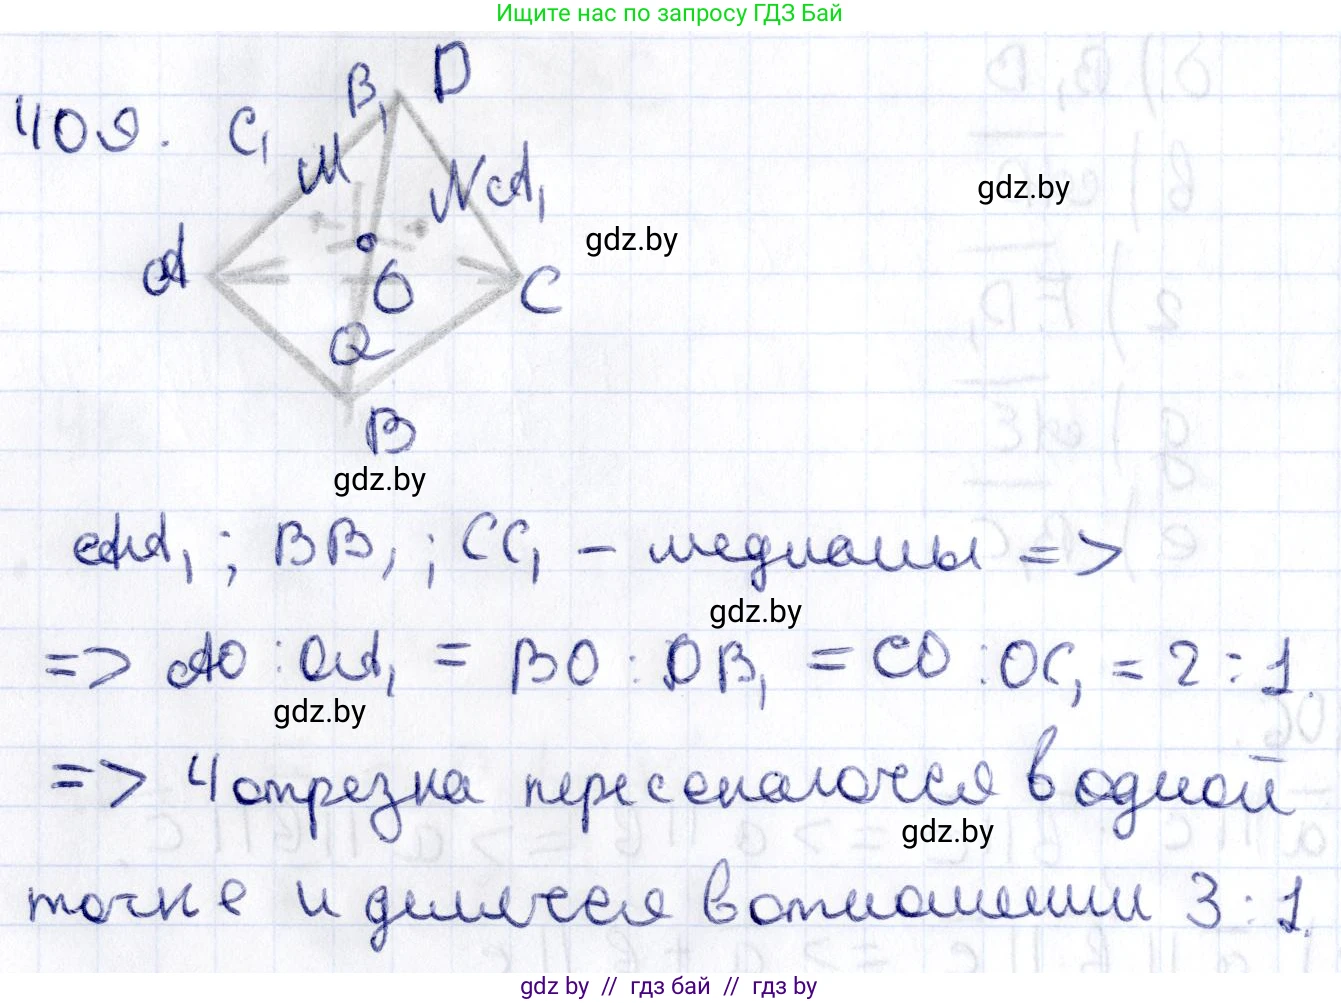 Ищите нас по запросу ГДЗ Бай
409.
C₁
B₁
D
M
N
A₁
gdz.by
gdz.by
A
O
C
Q
B
gdz.by
AA₁; BB₁; CC₁ – медианы =>
gdz.by
=> AO : OA₁ = BO : OB₁ = CO : OC₁ = 2 : 1.
gdz.by
=> 4 отрезка пересекаются в одной
gdz.by
точке и делятся в отношении 3 : 1.
gdz by // гдз бай // гдз by